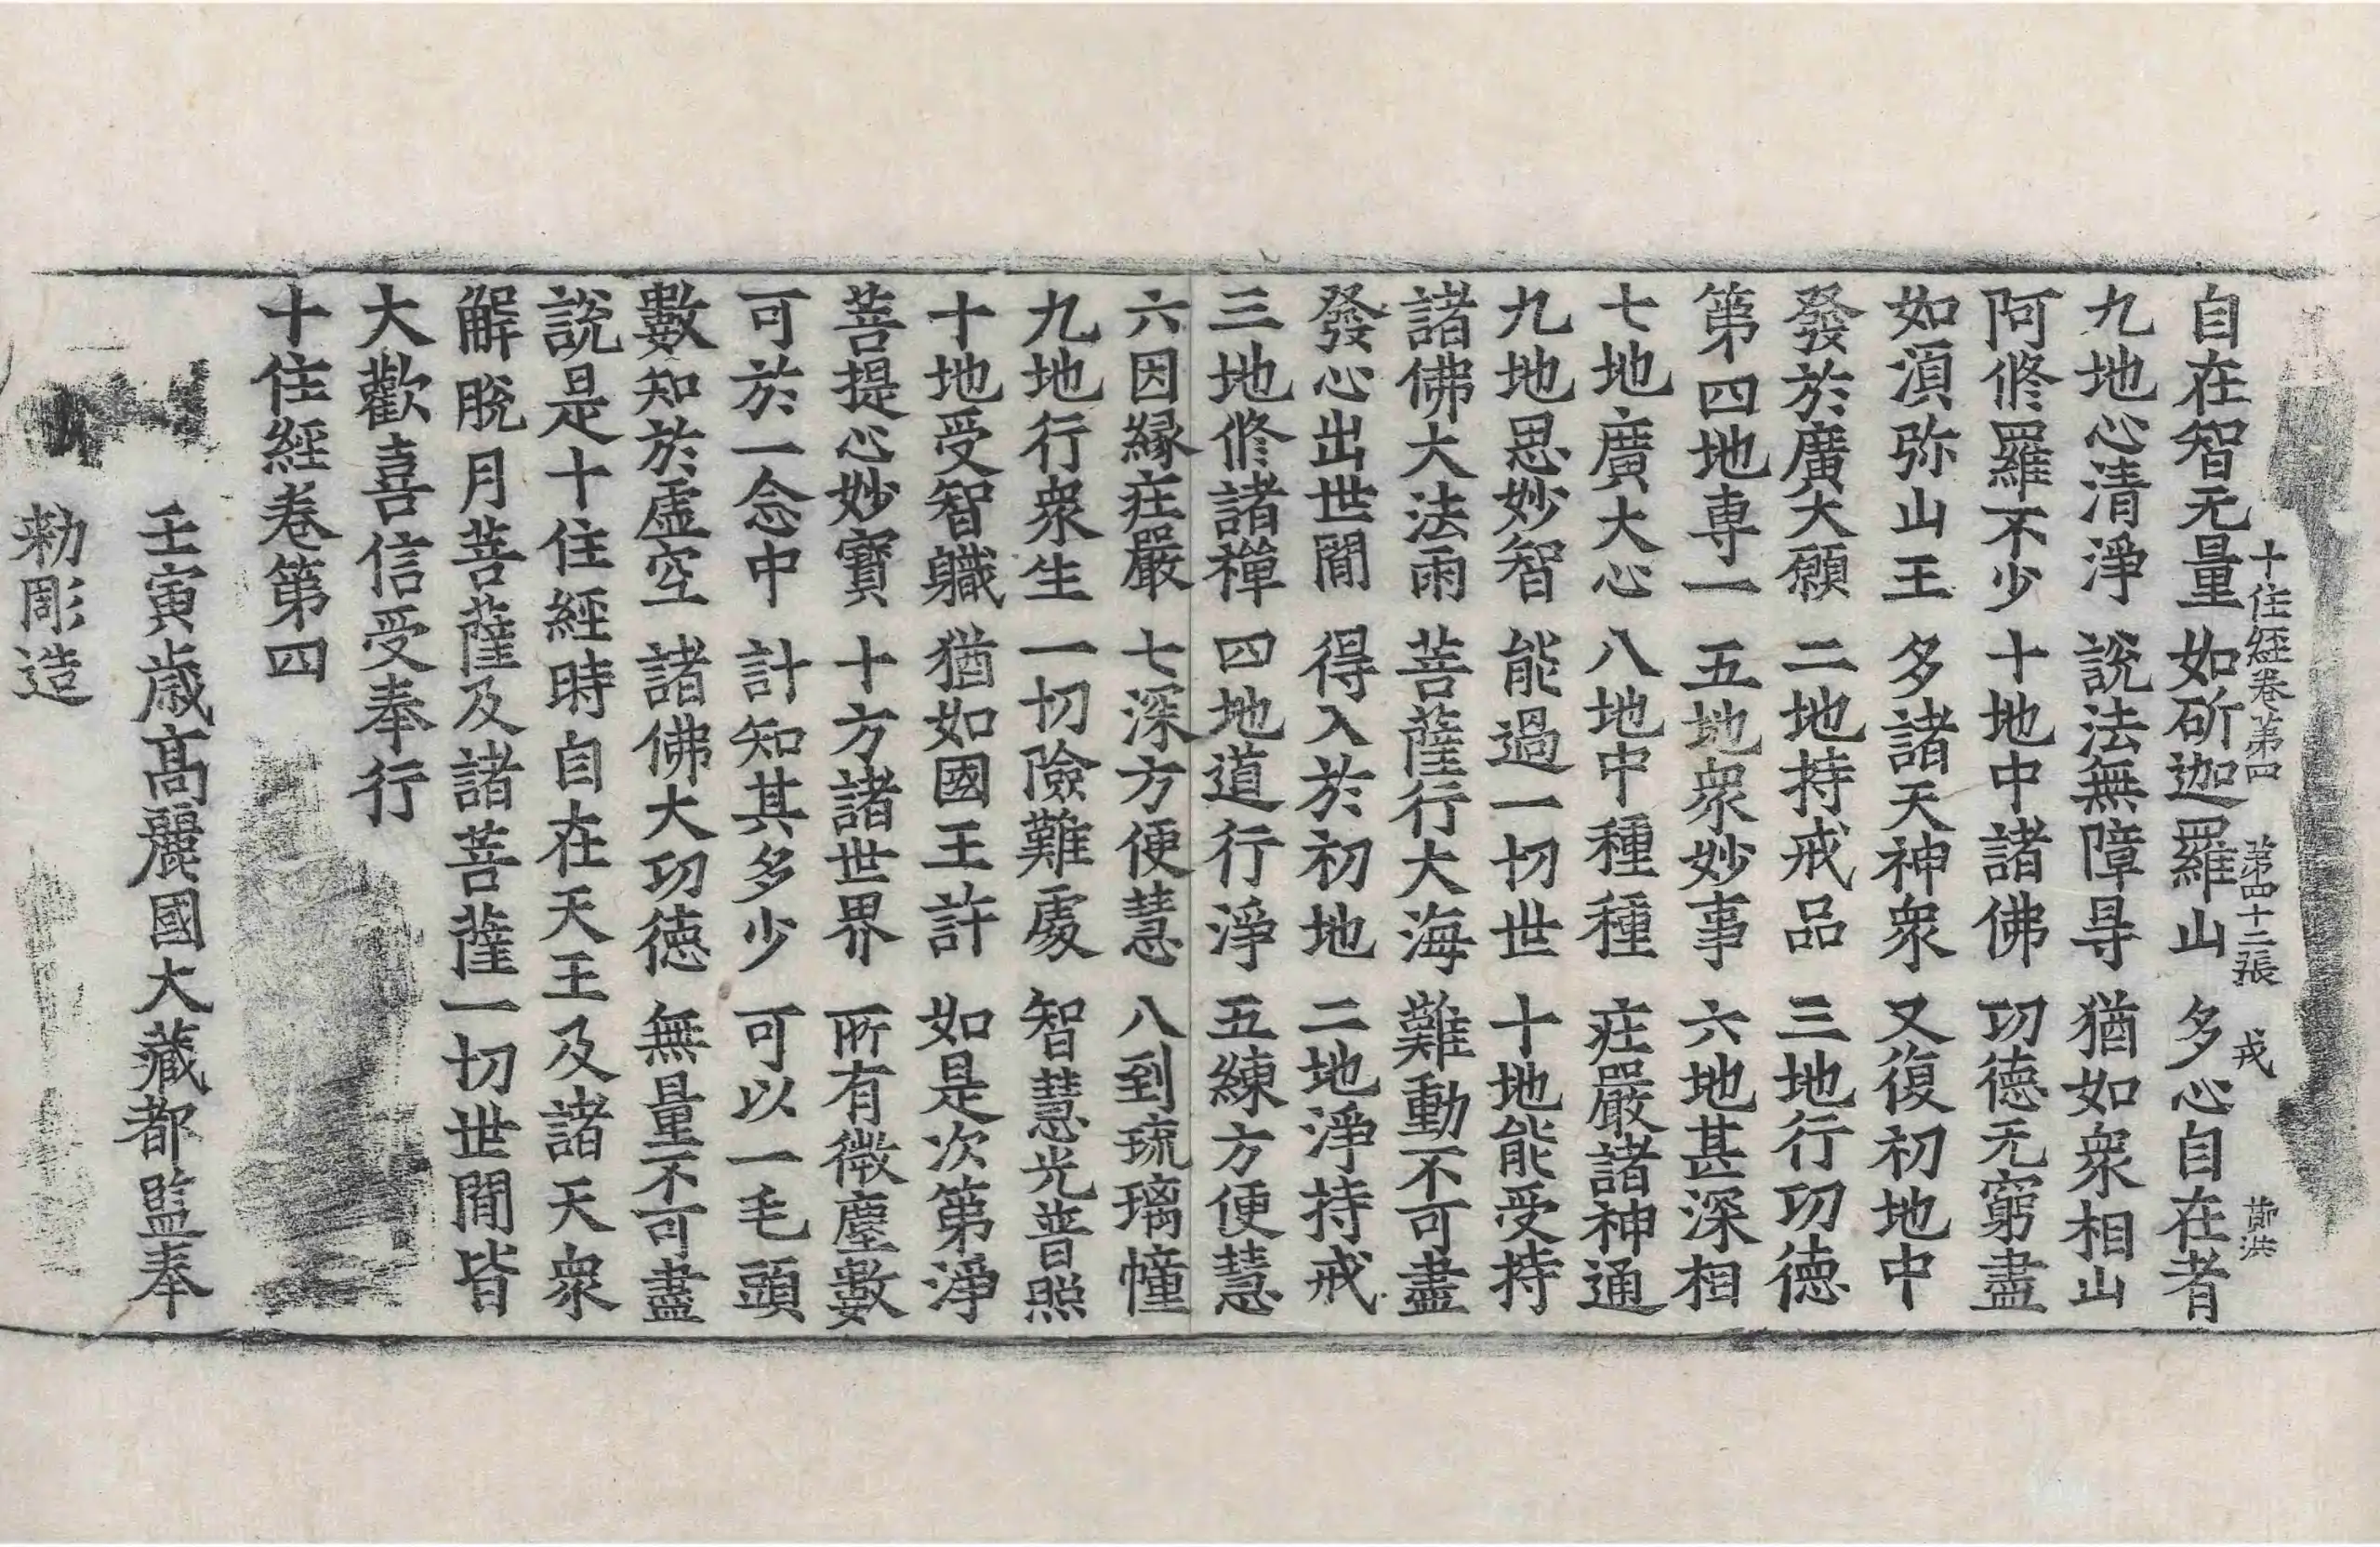 十住經卷第四 第四十二張 戎
自在智无量 如斫迦羅山 多心自在者
九地心清淨 說法無障㝵 猶如衆相山
阿修羅不少 十地中諸佛 功德无窮盡
如湏弥山王 多諸天神衆 又復初地中
發於廣大願 二地持戒品 三地行功德
第四地専一 五地衆妙事 六地甚深相
七地廣大心 八地中種種 庄嚴諸神通
九地思妙智 能過一切世 十地能受持
諸佛大法雨 菩薩行大海 難動不可盡
發心出世閒 得入於初地 二地淨持戒
三地修諸禪 四地道行淨 五練方便慧
六因緣庄嚴 七深方便慧 八到琉璃幢
九地行衆生 一切險難處 智慧光普照
十地受智軄 猶如國王許 如是次第淨
菩提心妙寶 十方諸世界 所有微塵數
可於一念中 計知其多少 可以一毛頭
數知於虛空 諸佛大功德 無量不可盡
說是十住經時自在天王及諸天衆
解脫月菩薩及諸菩薩一切世閒皆
大歡喜信受奉行
十住經卷第四
壬寅歲高麗國大藏都監奉
勑彫造